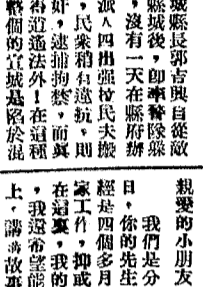 城縣長郭吉興自從敵
縣城後，即率警隊躲
，沒有一天在縣府辦
派人四出强拉民夫搬
，民衆稍有違抗，則
奸，逮捕拘禁，而眞
得逍遙法外！在這種
整個的宣城是陷於混
親愛的小朋友
我們是分
日，你的先生
經是四個多月
家工作，抑或
在這裏，我的
，我還希望能
上，講講故事